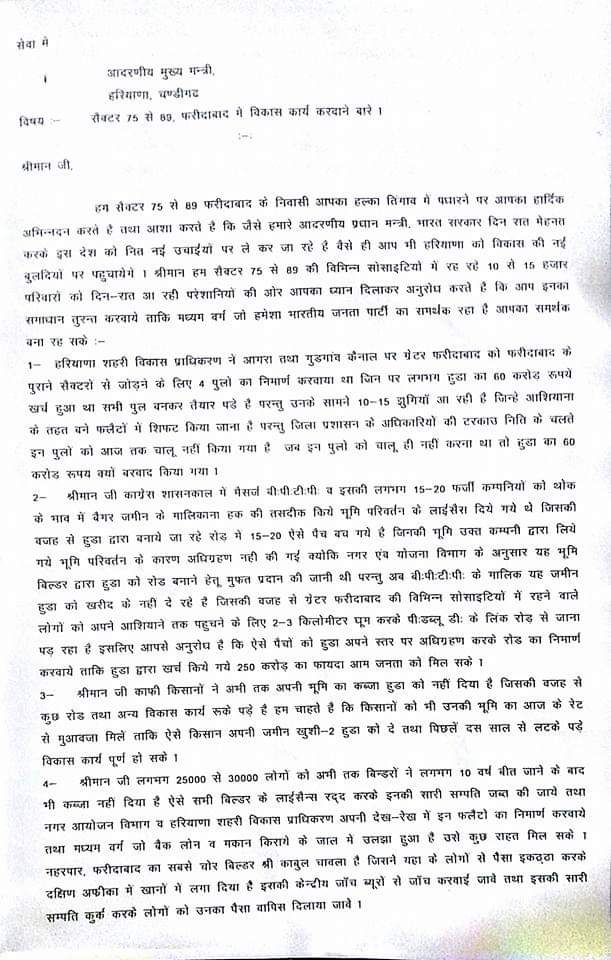 सेवा में
आदरणीय मुख्य मन्त्री,
हरियाणा, चण्डीगढ
विषय :– सैक्टर 75 से 89, फरीदाबाद में विकास कार्य करवाने बारे ।
:–:
श्रीमान जी,
हम सैक्टर 75 से 89 फरीदाबाद के निवासी आपका हल्का तिगांव में पधारने पर आपका हार्दिक
अभिन्नदन करते है तथा आशा करते है कि जैसे हमारे आदरणीय प्रधान मन्त्री, भारत सरकार दिन रात मेहनत
करके इस देश को नित नई उचाईयों पर ले कर जा रहे है वैसे ही आप भी हरियाणा को विकास की नई
बुलदियों पर पहुचायेगे । श्रीमान हम सैक्टर 75 से 89 की विभिन्न सोसाइटियों में रह रहे 10 से 15 हजार
परिवारों को दिन–रात आ रही परेशानियों की ओर आपका ध्यान दिलाकर अनुरोध करते है कि आप इनका
समाधान तुरन्त करवाये ताकि मध्यम वर्ग जो हमेशा भारतीय जनता पार्टी का समर्थक रहा है आपका समर्थक
बना रह सके :–
1– हरियाणा शहरी विकास प्राधिकरण ने आगरा तथा गुडगांव कैनाल पर ग्रेटर फरीदाबाद को फरीदाबाद के
पुराने सैक्टरों से जोड़ने के लिए 4 पुलों का निमार्ण करवाया था जिन पर लगभग हुडा का 60 करोड रूपये
खर्च हुआ था सभी पुल बनकर तैयार पडे है परन्तु उनके सामने 10–15 झुगियाँ आ रही है जिन्हे आशियाना
के तहत बने फलैटों में शिफट किया जाना है परन्तु जिला प्रशासन के अधिकारियों की टरकाउ निति के चलते
इन पुलों को आज तक चालू नहीं किया गया है जब इन पुलों को चालू ही नहीं करना था तो हुडा का 60
करोड रूपय क्यों बरवाद किया गया ।
2– श्रीमान जी कांग्रेस शासनकाल में मैसर्ज बी:पी:टी:पी: व इसकी लगभग 15–20 फर्जी कम्पनियों को थोक
के भाव में बैगर जमीन के मालिकाना हक की तसदीक किये भूमि परिवर्तन के लाईसैंस दिये गये थे जिसकी
वजह से हुडा द्वारा बनाये जा रहे रोड में 15–20 ऐसे पैच बच गये है जिनकी भूमि उक्त कम्पनी द्वारा लिये
गये भूमि परिवर्तन के कारण अधिग्रहण नही की गई क्योकि नगर एंव योजना विभाग के अनुसार यह भूमि
बिल्डर द्वारा हुडा को रोड बनाने हेतू मुफत प्रदान की जानी थी परन्तु अब बी:पी:टी:पी: के मालिक यह जमीन
हुडा को खरीद के नहीं दे रहे है जिसकी वजह से ग्रेटर फरीदाबाद की विभिन्न सोसाइटियों में रहने वाले
लोगों को अपने आशियाने तक पहुचने के लिए 2–3 किलोमीटर घूम करके पी:डब्लू डी: के लिंक रोड से जाना
पड़ रहा है इसलिए आपसे अनुरोध है कि ऐसे पैचों को हुडा अपने स्तर पर अधिग्रहण करके रोड का निमार्ण
करवाये ताकि हुडा द्वारा खर्च किये गये 250 करोड का फायदा आम जनता को मिल सके ।
3– श्रीमान जी काफी किसानों ने अभी तक अपनी भूमि का कब्जा हुडा को नहीं दिया है जिसकी वजह से
कुछ रोड तथा अन्य विकास कार्य रूके पडे है हम चाहते है कि किसानों को भी उनकी भूमि का आज के रेट
से मुआवजा मिलें ताकि ऐसे किसान अपनी जमीन खुशी–2 हुडा को दे तथा पिछलें दस साल से लटके पडे
विकास कार्य पूर्ण हो सके ।
4– श्रीमान जी लगभग 25000 से 30000 लोगों को अभी तक बिन्डरों ने लगभग 10 वर्ष बीत जाने के बाद
भी कब्जा नहीं दिया है ऐसे सभी बिल्डर के लाईसैन्स रद्द करके इनकी सारी सम्पति जब्त की जाये तथा
नगर आयोजन विभाग व हरियाणा शहरी विकास प्राधिकरण अपनी देख–रेख में इन फलैटों का निमार्ण करवाये
तथा मध्यम वर्ग जो बैक लोन व मकान किराये के जाल में उलझा हुआ है उसे कुछ राहत मिल सके ।
नहरपार, फरीदाबाद का सबसे चोर बिल्डर श्री काबुल चावला है जिसने यहा के लोगों से पैसा इकठ्ठा करके
दक्षिण अफीका में खानों में लगा दिया है इसकी केन्दीय जाँच ब्यूरों से जाँच करवाई जावे तथा इसकी सारी
सम्पति कुर्क करके लोगों को उनका पैसा वापिस दिलाया जावे ।